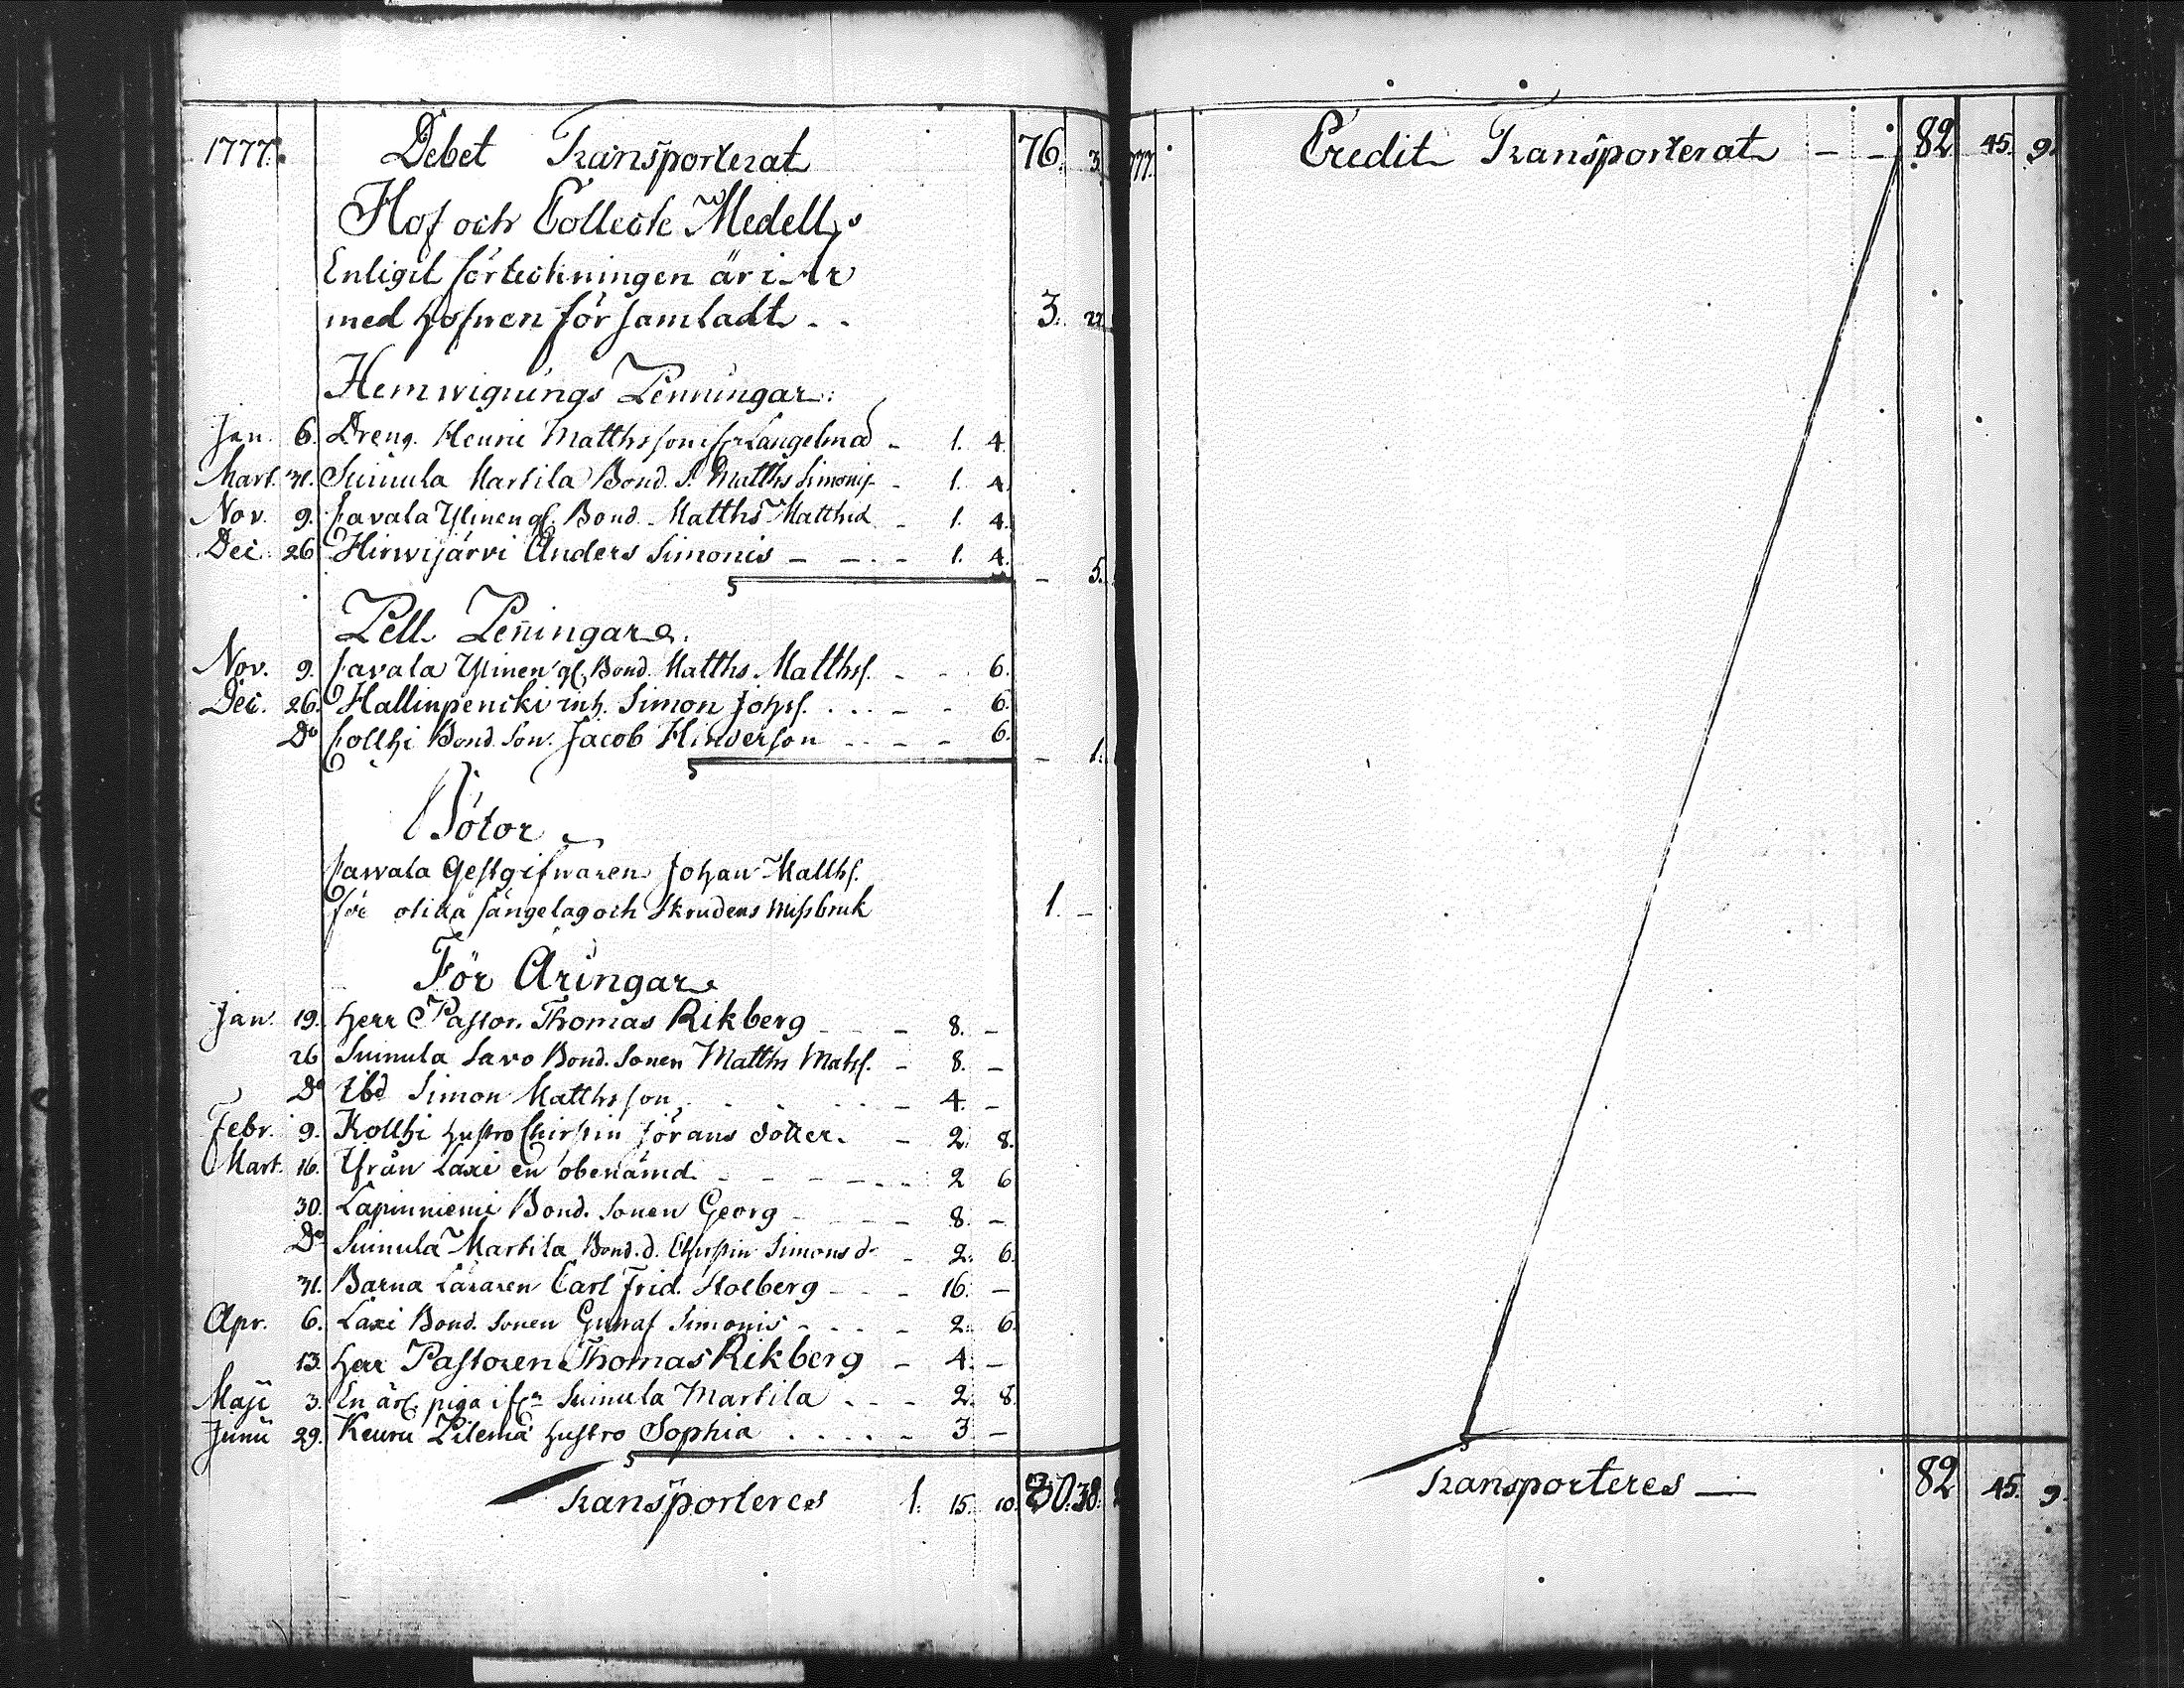 1777. Debet Transporterat 76. 3.
Hof och Collecte Medell
Enligit förteckningen är i År
med Hofwen församladt - - 3. 22
Hemwignings Penningar:
Jan. 6. Dreng. Henric Matthsson ifr Längelmä - 1. 4.
Mart. 31. Suinula Martila Bond. S. Matths Simonis - 1. 4.
Nov. 9. Savala Yflinen Bond. Matths Matthiæ - 1. 4.
Dec. 26 Hirwijärvi Anders Simonis - - - - 1. 4. - 5.
Pell Peñingar.
Nov. 9. Savala Yflinen Bond. Matths Matthsf. - - 6.
Dec. 26. Hallinpencki inh. Simon Johsf. . . - - 6.
Do Collhi Bond. Son. Jacob Hinderson - - - - 6. - 1.
Böter
Sawala Gestgifwaren Johan Matthsf.
för olika sängelag och Skrudens missbruk 1. -
För Åringar
Jan. 19. Herr Pastor. Thomas Rikberg - - - 8. -
26 Suinula Savo Bond. Sonen Matths Matsf. - 8. -
Do Ibd Simon Matthsson . . . - 4. -
Febr. 9. Kollhi hustro Chirstin Jörans dotter. - 2. 8.
Mart. 16. Ifrån Laxi en obenämd - - - - - 2 6
30. Lapinniemi Bond. Sonen Georg - - - - 8. -
Do Suinula Martila Bond. d. Chirstin Simons dr - 2. 6.
31. Barna Läraren Carl Frid. Holberg - - - 16. -
Apr. 6. Laxi Bond. Sonen Gustaf Simonis - - - 2. 6.
13. Herr Pastoren Thomas Rikberg - 4. -
Maji 3. En ärl. piga ifrn Suinula Martila - - - 2. 8.
Junii 29. Keuru Pilemä hustro Sophia . . . . - 3 -
Transporteres 1. 15. 10. 80. 38.
1777. Credit Transporterat - - 82 45. 9.
Transporteres — 82 45. 9.